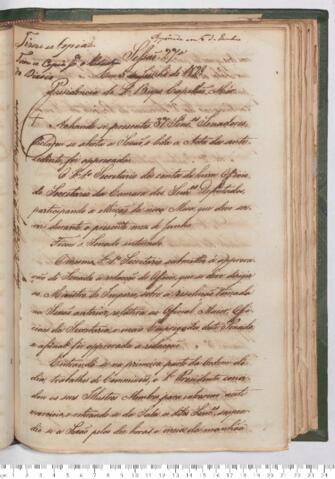 Tirou-se Copia
Sessão 27ª
Em 5 de Junho de 1828
Presidencia do S. Bispo Capellão Mór
Achando-se presentes 37 Senrs. Senadores,
declarou-se aberta a Sessão, e lida a Acta da ante-
cedente, foi approvada.
O 1º Secretario deo conta de hum Officio
do Secretario da Camara dos Senrs. Deputados,
participando a eleição da nova Mesa, que deve ser-
vir durante o presente mez de Junho.
Ficou o Senado inteirado.
O mesmo Sr. Secretario submetteo á approva-
ção do Senado a redacção do Officio, que se deve dirigir
ao Ministro do Imperio, sobre a resolução tomada
na Sessão anterior, relativa ao Official Maior, Offi-
ciaes da Secretaria, e mais Empregados deste Senado,
e afinal foi approvada a redacção.
Entrando-se na primeira parte da Ordem do
dia, trabalhos de Commissões, o Sr. Presidente convi-
dou os seus Illustres Membros para
e a Sessão pelas dez horas e meia da manhãa